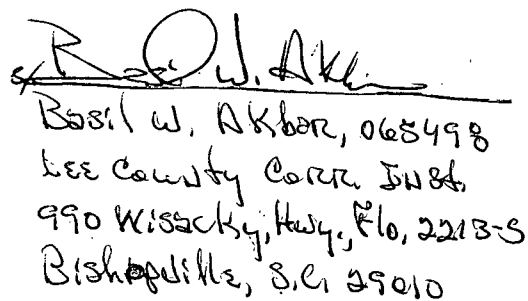 s/ Basil W. Akbar
Basil W. Akbar, 065498
Lee County Corr. Inst.
990 Wisacky, Hwy., Flo, 2213-S
Bishopville, S.C. 29010